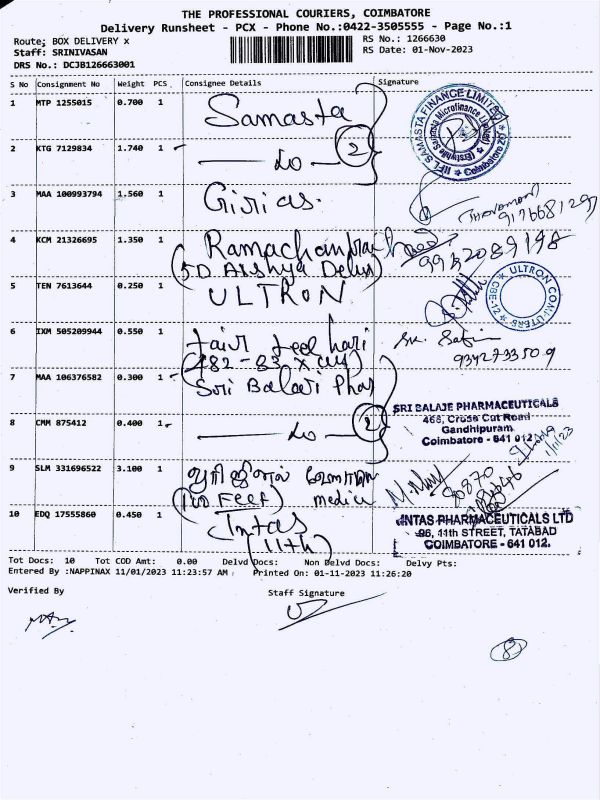 THE PROFESSIONAL COURIERS, COIMBATORE
Delivery Runsheet - PCX - Phone No.:0422-3505555 - Page No.:1
Route; BOX DELIVERY x
RS No.: 1266630
Staff: SRINIVASAN
RS Date: 01-Nov-2023
DRS No.: DCJB126663001
S No Consignment No Weight PCS Consignee Details Signature
1 MTP 1255015 0.700 1 Samasta
IIFL SAMASTA FINANCE LIMITED
(Erstwhile Samasta Microfinance Limited)
Coimbatore ZO
2 KTG 7129834 1.740 1 Do 2
3 MAA 100993794 1.560 1 Girias.
4 KCM 21326695 1.350 1 Ramachandra
(5D
ULTRON
9952089198
5 TEN 7613644 0.250 1
ULTRON COMPUTERS
CBE-12
6 IXM 505209944 0.550 1 hari
(482-83 x cut)
9342733509
7 MAA 106376582 0.300 1 Sri Balaji Phar
SRI BALAJE PHARMACEUTICALS
468, Cross Cut Road
Gandhipuram
Coimbatore - 641 012
8 CMM 875412 0.400 1 Do 2
1/11/23
9 SLM 331696522 3.100 1
(100 FEET) medics
10 EDQ 17555860 0.450 1 Intas
(11th)
INTAS PHARMACEUTICALS LTD
96, 11th STREET, TATABAD
COIMBATORE - 641 012.
Tot Docs: 10 Tot COD Amt: 0.00 Delvd Docs: Non Delvd Docs: Delvy Pts:
Entered By :NAPPINAX 11/01/2023 11:23:57 AM Printed On: 01-11-2023 11:26:20
Verified By
Staff Signature
8